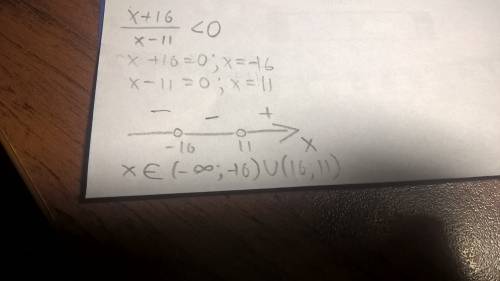 x+16
x-11 <0
x+16=0; x=-16
x-11=0; x=11
- - +
-16 11 x
x∈(-∞;-16)∪(16;11)